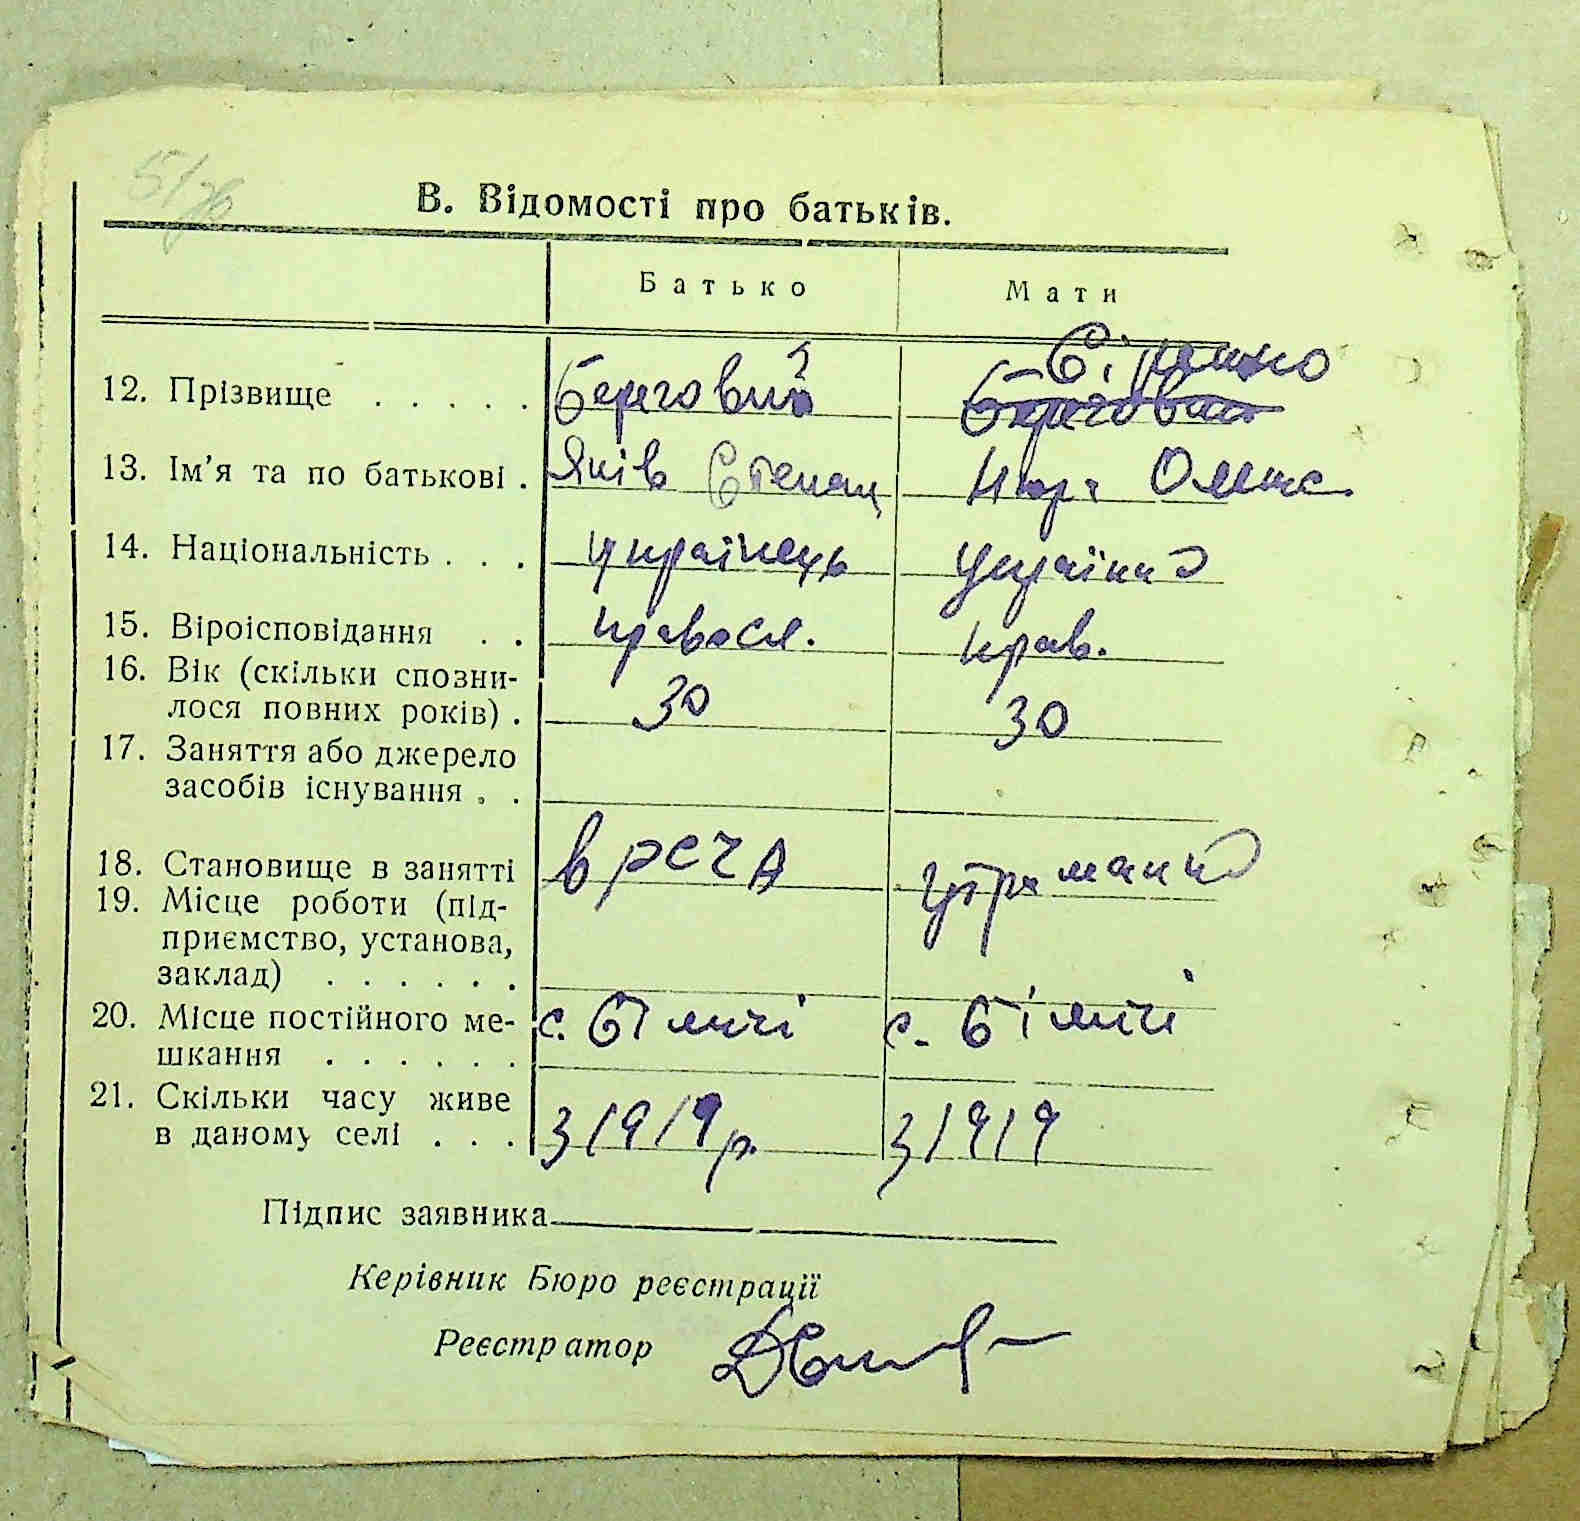 В. Відомості про батьків.
Батько Мати
12. Прізвище . . . . . Береговий Береговая
13. Ім’я та по батькові . Яків Степан Нюра
14. Національність . . . українець україн
15. Віроісповідання . . правосл. прав.
16. Вік (скільки спозни-
лося повних років) . 30 30
17. Заняття або джерело
засобів існування . .
18. Становище в занятті в РСЧА утриманка
19. Місце роботи (під-
приємство, установа,
заклад) . . . . . .
20. Місце постійного ме- с. Біличі с. Біличі
шкання . . . . . .
21. Скільки часу живе
в даному селі . . . з 1919 р. з 1919
Підпис заявника
Керівник Бюро реєстрації
Реєстратор